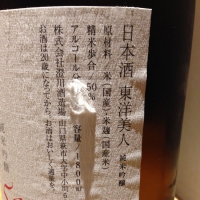 日本酒 東洋美人 純米吟醸
原材料 米(国産)・米麹(国産米)
精米歩合 50%
アルコール分 容量 1800ml
株式会社澄川酒造場 山口県萩市大字中小川6
お酒は20歳になってから。お酒はおいしく適量を。
純米吟醸